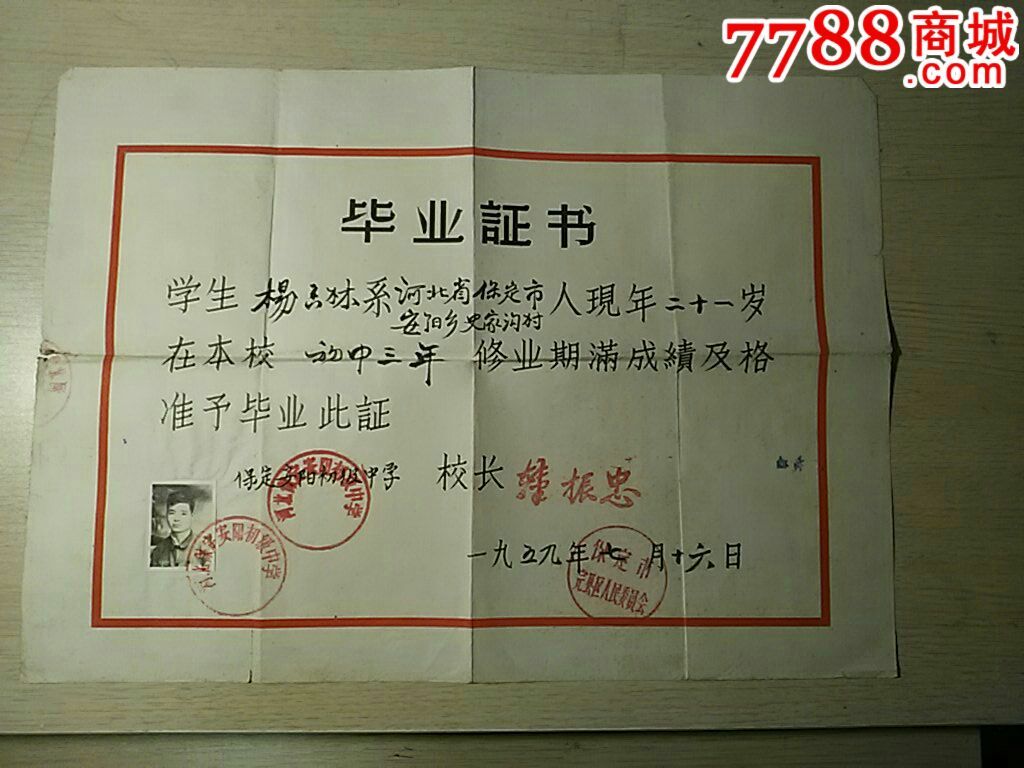 7788商城
.com
毕业証书
学生 楊 林系河北省保定市人現年二十一岁
安阳乡史家沟村
在本校 初中三年 修业期滿成績及格
准予毕业此証
保定安阳初级中学 校长 振忠
安陽初級中学
中学
一九五九年七月十六日
保定市
完县区人民委員会